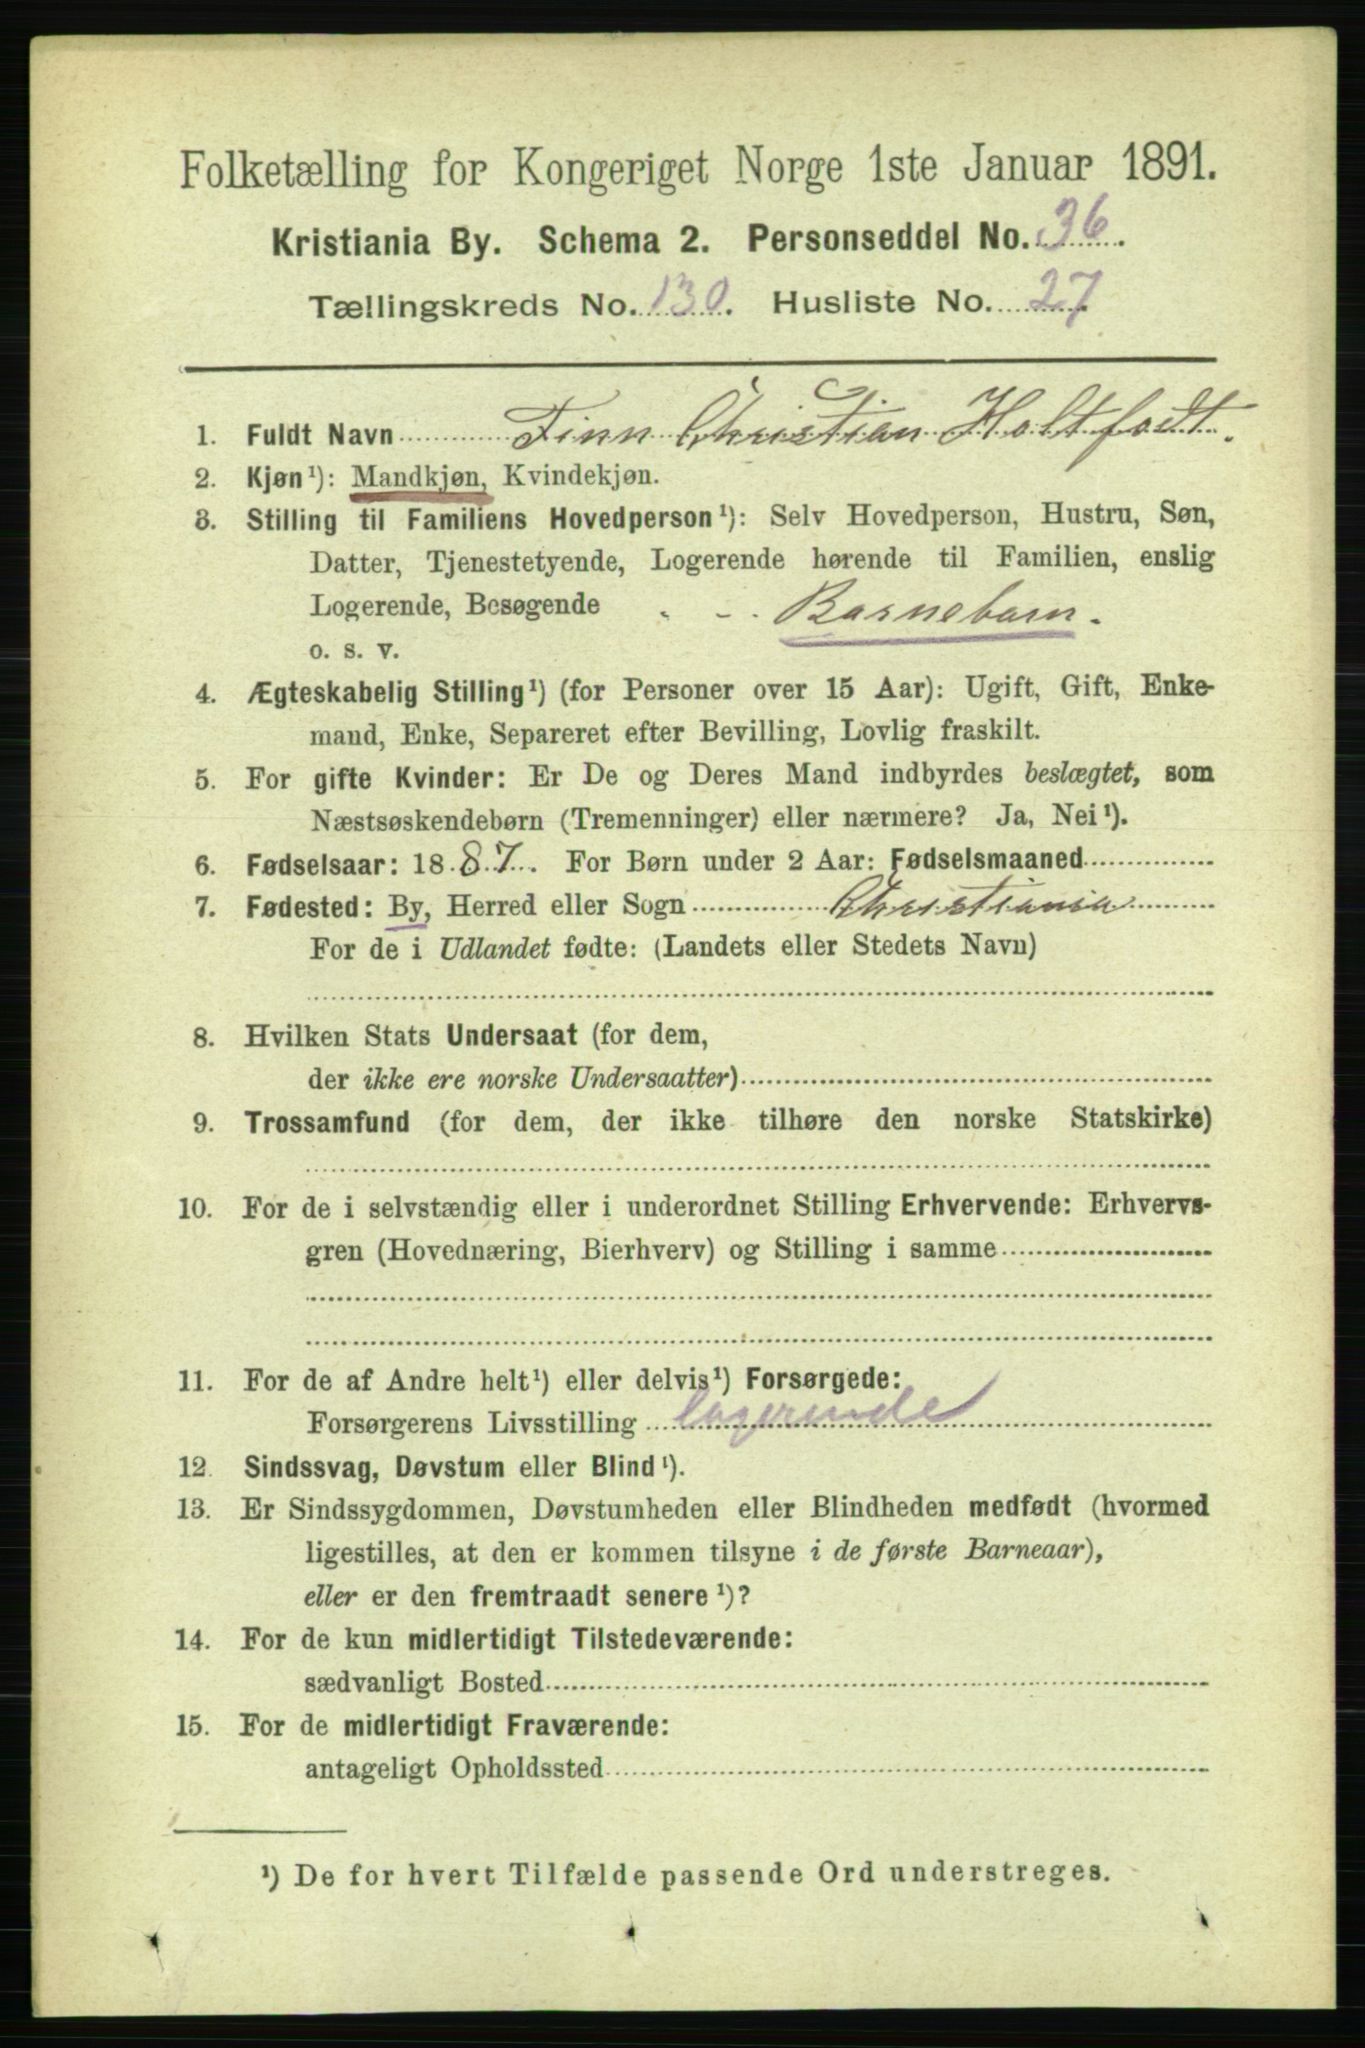 Folketælling for Kongeriget Norge 1ste Januar 1891.
Kristiania By. Schema 2. Personseddel No. 36.
Tællingskreds No. 130. Husliste No. 27
1. Fuldt Navn Finn Christian Holtfodt.
2. Kjøn¹): Mandkjøn, Kvindekjøn.
3. Stilling til Familiens Hovedperson¹): Selv Hovedperson, Hustru, Søn,
Datter, Tjenestetyende, Logerende hørende til Familien, enslig
Logerende, Besøgende - - Barnebarn.
o. s. v.
4. Ægteskabelig Stilling¹) (for Personer over 15 Aar): Ugift, Gift, Enke-
mand, Enke, Separeret efter Bevilling, Lovlig fraskilt.
5. For gifte Kvinder: Er De og Deres Mand indbyrdes beslægtet, som
Næstsøskendebørn (Tremenninger) eller nærmere? Ja, Nei¹).
6. Fødselsaar: 1887. For Børn under 2 Aar: Fødselsmaaned
7. Fødested: By, Herred eller Sogn Christiania
For de i Udlandet fødte: (Landets eller Stedets Navn)
8. Hvilken Stats Undersaat (for dem,
der ikke ere norske Undersaatter)
9. Trossamfund (for dem, der ikke tilhøre den norske Statskirke)
10. For de i selvstændig eller i underordnet Stilling Erhvervende: Erhvervs-
gren (Hovednæring, Bierhverv) og Stilling i samme
11. For de af Andre helt¹) eller delvis¹) Forsørgede:
Forsørgerens Livsstilling logerende
12. Sindssvag, Døvstum eller Blind¹).
13. Er Sindssygdommen, Døvstumheden eller Blindheden medfødt (hvormed
ligestilles, at den er kommen tilsyne i de første Barneaar),
eller er den fremtraadt senere¹)?
14. For de kun midlertidigt Tilstedeværende:
sædvanligt Bosted
15. For de midlertidigt Fraværende:
antageligt Opholdssted
¹) De for hvert Tilfælde passende Ord understreges.